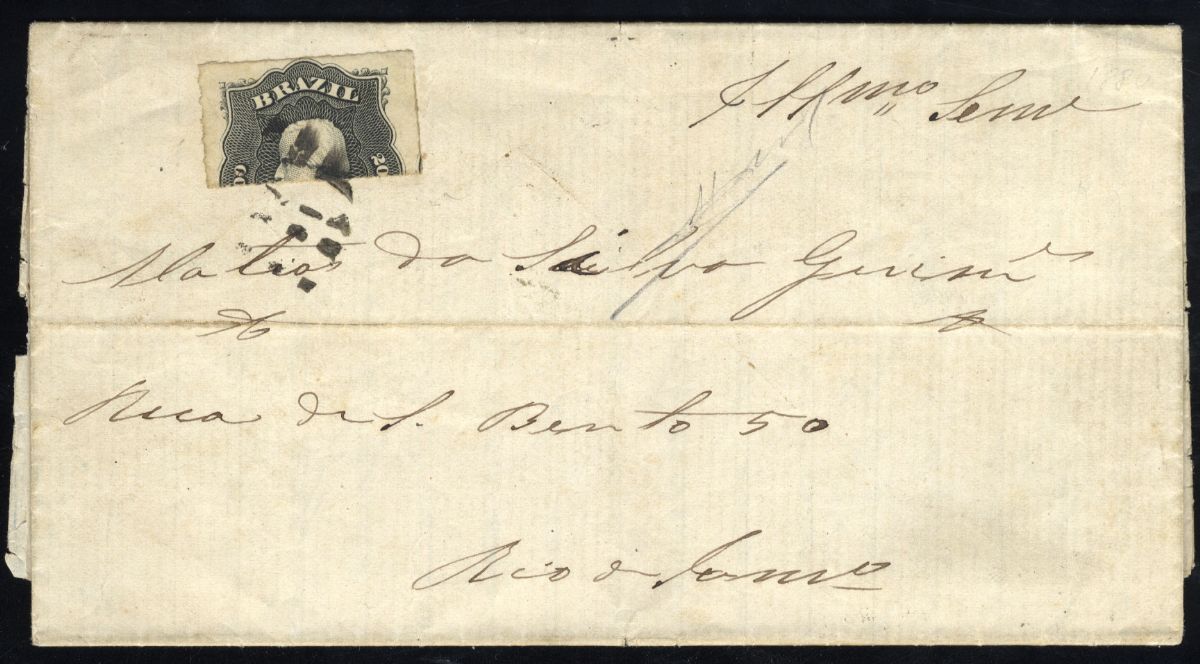 BRAZIL
200 200
Illmo Senr
Matias da Silva
Rua de S. Bento 50
Rio de Janro